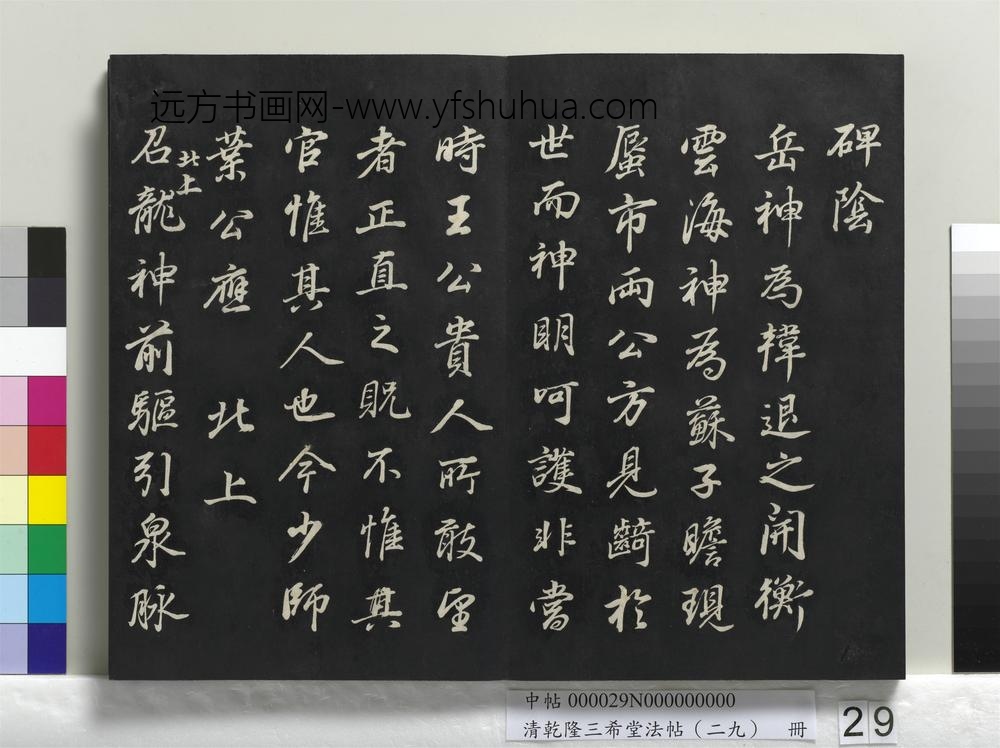 远方书画网-www.yfshuhua.com
碑陰
岳神為韓退之開衡
雲海神為蘇子瞻現
蜃市兩公方見齮於
世而神明呵護非當
時王公貴人所敢望
者正直之貺不惟其
官惟其人也今少師
葉公應 北上
北上
召龍神前驅引泉脉
中帖 000029N000000000
清乾隆三希堂法帖（二九） 冊
29